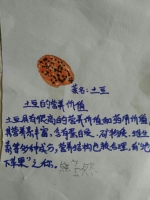 蔬名：土豆
土豆的营养价值
土豆具有很高的营养价值和药用价值，
其营养素丰富，含有蛋白质、矿物质、维生
素等多种成分，营养结构也较合理，有“地
下苹果”之称。